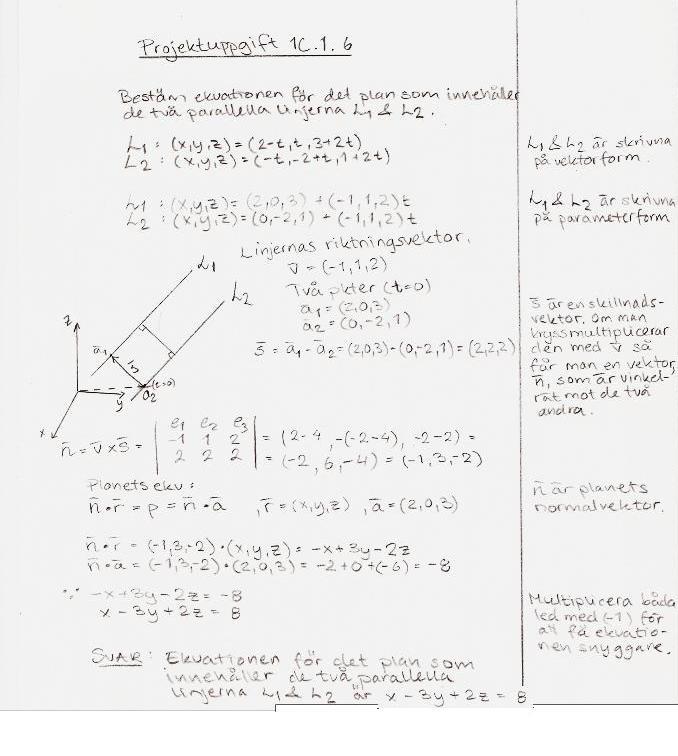 Projektuppgift 1C.1.6
Bestäm ekvationen för det plan som innehåller
de två parallella linjerna L₁ & L₂.
L₁ : (x,y,z) = (2-t, t, 3+2t)
L₂ : (x,y,z) = (-t, -2+t, 1+2t)
L₁ & L₂ är skrivna
på vektorform.
L₁ : (x,y,z) = (2,0,3) + (-1,1,2)t
L₂ : (x,y,z) = (0,-2,1) + (-1,1,2)t
L₁ & L₂ är skrivna
på parameterform
Linjernas riktningsvektor.
v̄ = (-1,1,2)
Två pkter (t=0)
ā₁ = (2,0,3)
ā₂ = (0,-2,1)
s̄ = ā₁ - ā₂ = (2,0,3) - (0,-2,1) = (2,2,2)
L₁
L₂
z
ā₁
s̄
(t=0)
ā₂
y
x
s̄ är en skillnads-
vektor. Om man
kryssmultiplicerar
den med v̄ så
får man en vektor,
n̄, som är vinkel-
rät mot de två
andra.
n̄ = v̄ × s̄ = | e₁ e₂ e₃ |
| -1 1 2 | = (2-4, -(-2-4), -2-2) =
| 2 2 2 | = (-2, 6, -4) = (-1, 3, -2)
Planets ekv :
n̄ • r̄ = p = n̄ • ā , r̄ = (x,y,z) , ā = (2,0,3)
n̄ är planets
normalvektor.
n̄ • r̄ = (-1,3,-2) • (x,y,z) = -x+3y-2z
n̄ • ā = (-1,3,-2) • (2,0,3) = -2+0+(-6) = -8
∵ -x+3y-2z = -8
x-3y+2z = 8
Multiplicera båda
led med (-1) för
att få ekvatio-
nen snyggare.
SVAR : Ekvationen för det plan som
innehåller de två parallella
linjerna L₁ & L₂ är x-3y+2z = 8